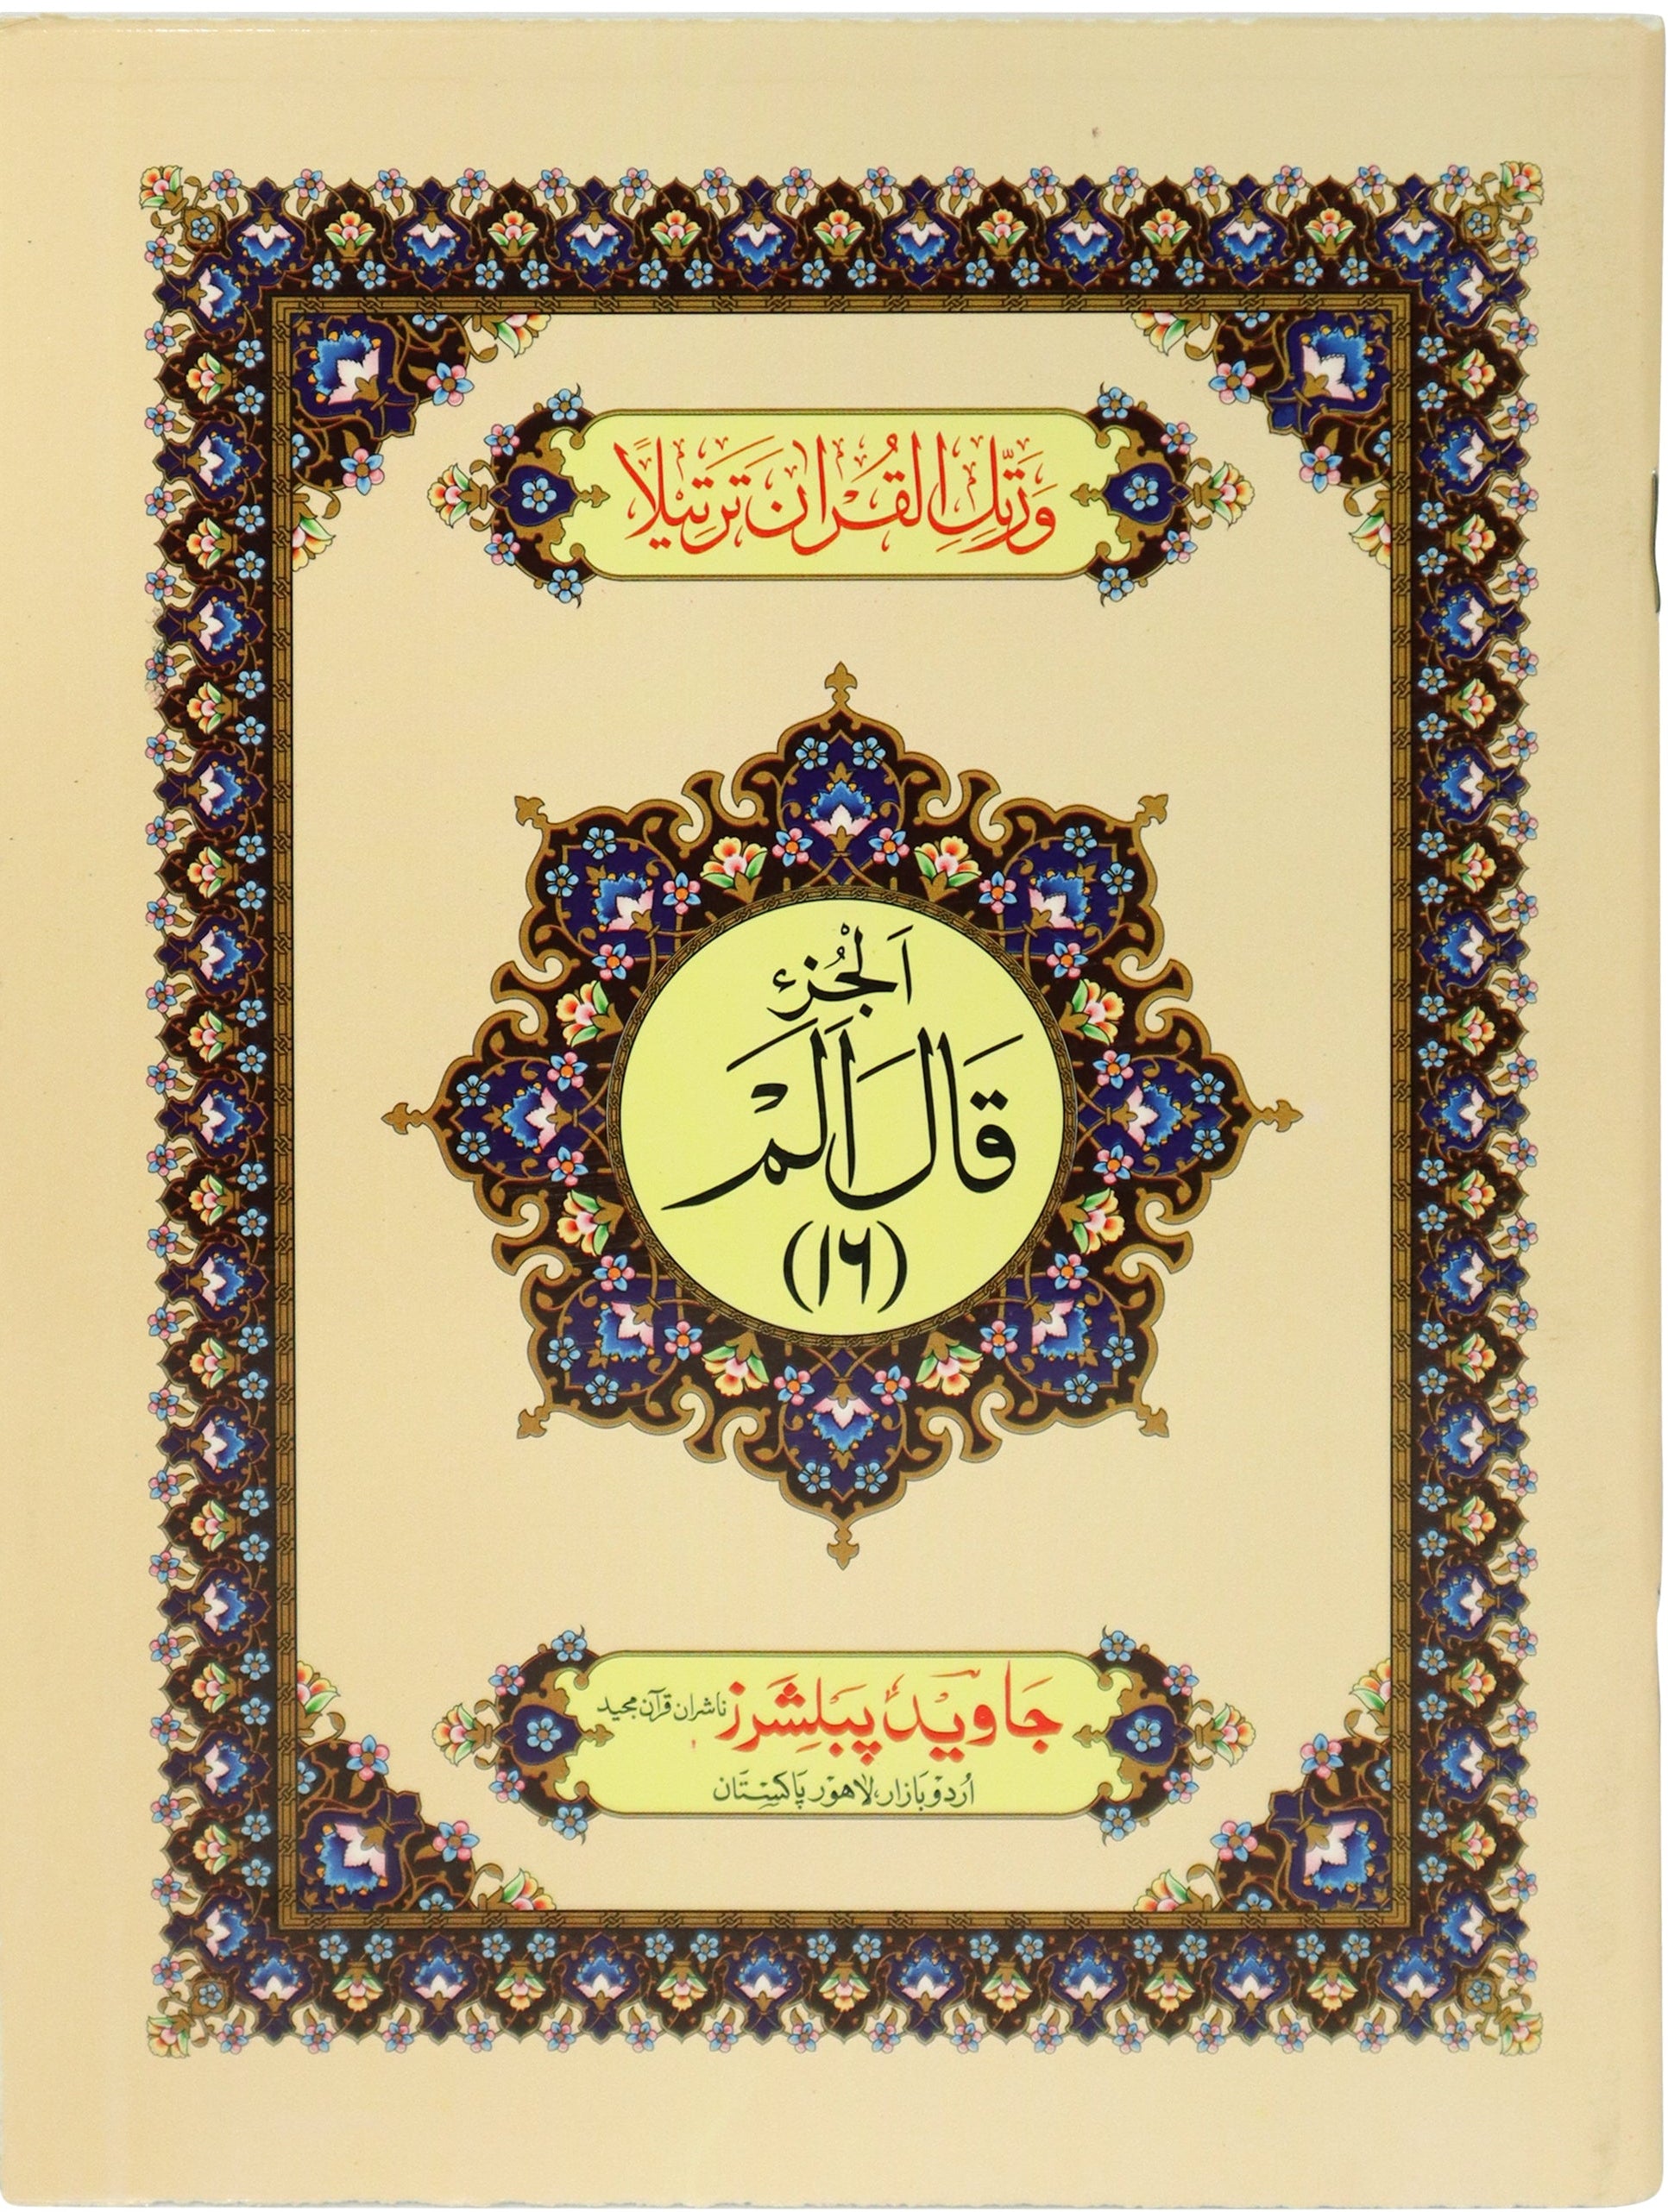 وَرَتِّلِ الْقُرْاٰنَ تَرْتِیْلًا
اَلْجُزْءُ
قَالَ اَلَمْ
(۱۶)
جَاوِیْد پَبْلِشَرز ناشران قرآن مجید
اُردو بازار، لاهور پاکستان